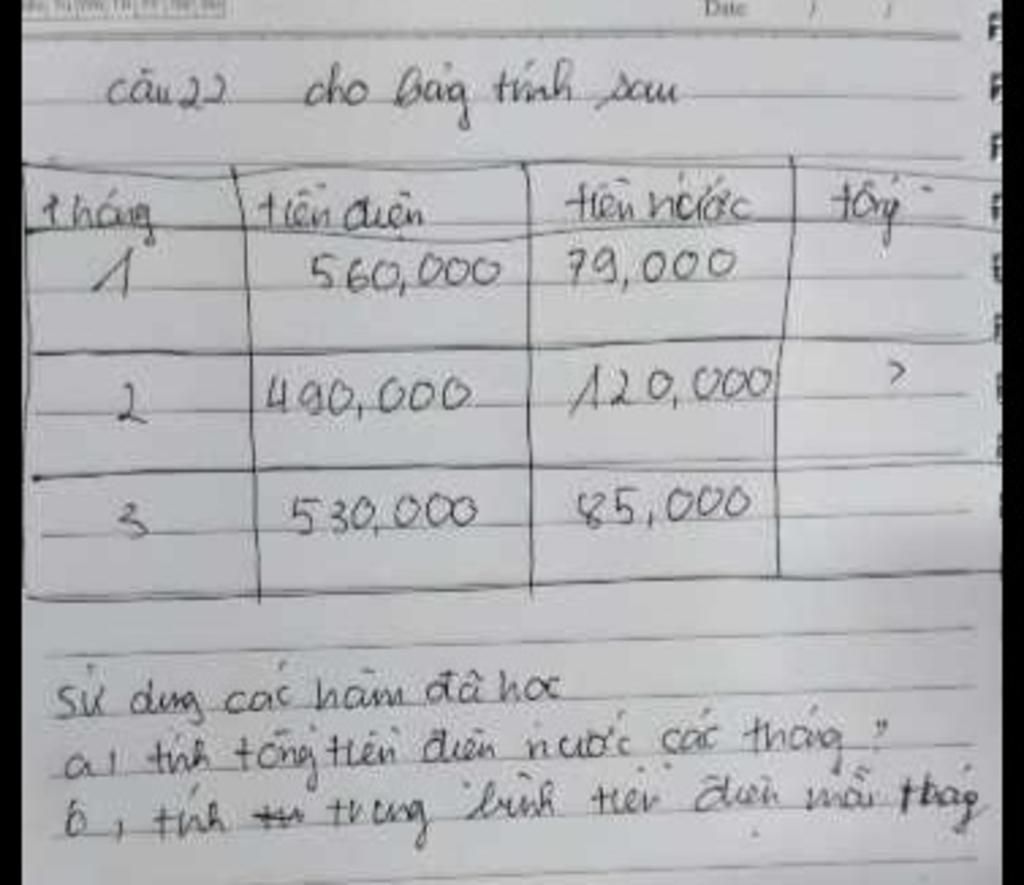 Date / /
câu 22 cho bảg tính sau
tháng tiền điện tiền nước tổng
1 560,000 79,000
2 490,000 120,000 ?
3 530,000 85,000
sử dụng các hàm đã học
a, tính tổng tiền điện nước các tháng ?
b, tính trung bình tiền điện mỗi thág